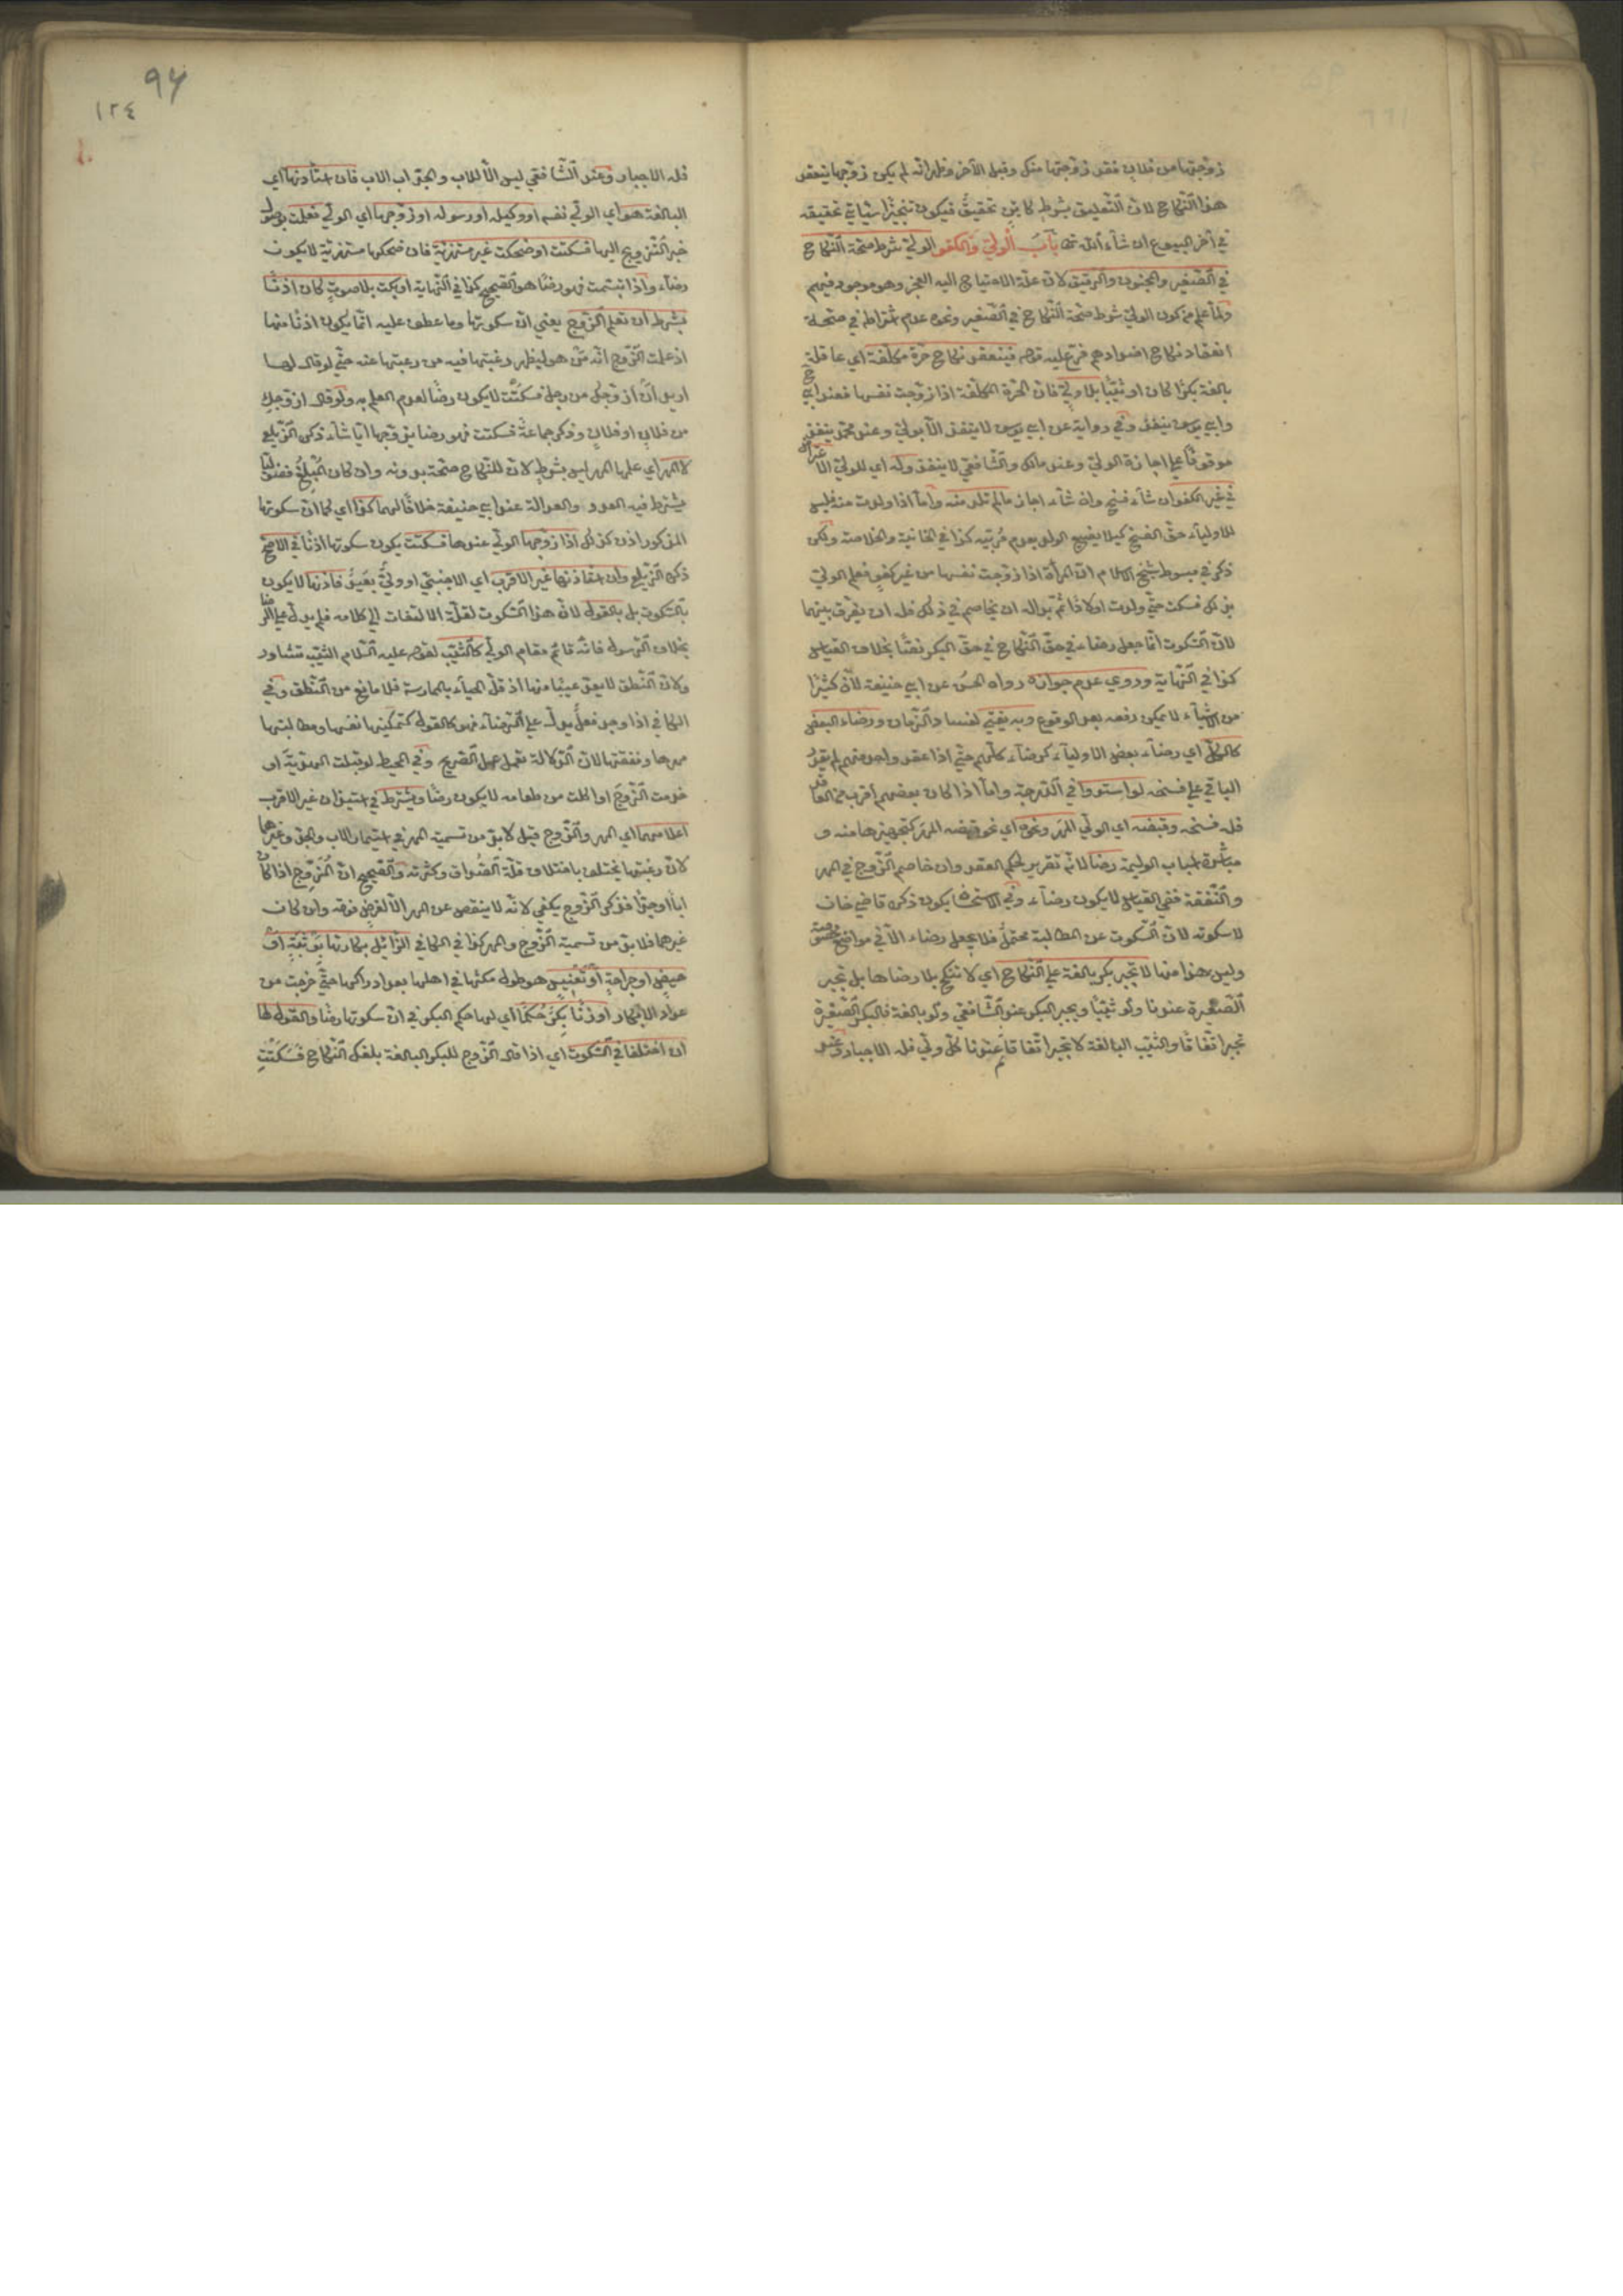 زوّجتها من فلان فقد زوّجتها منك وقبل الآخر وظهر انّه لم يكن زوّجها ينعقد
هذا النّكاح لانّ التّعليق بشرط كائن تحقيق فيكون تنجيزا سيأتي تحقيقه
في آخر البيوع ان شاء الله تعالى باب الوليّ والكفو الوليّ شرط صحّة النّكاح
في الصّغير والمجنون والرّقيق لانّ علّة الاحتياج اليه العجز وهو موجود فيهم
ولمّا علم من كون الوليّ شرط صحّة النّكاح في الصّغير ونحوه عدم اشتراطه في صحّة
انعقاد نكاح اضدادهم فرّع عليه قوله فينعقد نكاح حرّة مكلّفة اي عاقلة
بالغة بكرا كان او ثيّبا بلا وليّ فانّ الحرّة المكلّفة اذا زوّجت نفسها فعند ابي ح
وابي يوسف ينعقد وفي رواية عن ابي يوسف لا ينعقد الّا بوليّ وعند محمّد ينعقد
موقوفا على اجازة الوليّ وعند مالك والشّافعي لا ينعقد وله اي للوليّ الاعتراض
في غير الكفو ان شاء فسخ وان شاء اجاز ما لم تلد منه وامّا اذا ولدت منه فليس
للاولياء حقّ الفسخ كيلا يضيع الولد بعدم مربّيه كذا في الخانية والخلاصة ولكن
ذكر في مبسوط شيخ الاسلام انّ المرأة اذا زوّجت نفسها من غير كفو فعلم الوليّ
بذلك فسكت حتّى ولدت اولادا ثمّ بدا له ان يخاصم في ذلك فله ان يفرّق بينهما
لانّ السّكوت انّما جعل رضاء في حقّ النّكاح في حقّ البكر نصّا بخلاف القياس
كذا في النّهاية وروي عدم جوازه رواه الحسن عن ابي حنيفة لانّ كثيرا
من الاشياء لا يمكن رفعه بعد الوقوع وبه يفتى لفساد الزّمان ورضاء البعض
كالكلّ اي رضاء بعض الاولياء كرضاء كلّهم حتّى اذا عقد واحد منهم لم يقدر
الباقي على فسخه لو استووا في الدّرجة وامّا اذا كان بعضهم اقرب من العاقد
فله فسخه وقبضه اي الوليّ المهر ونحوه اي نحو قبضه المهر كتجهيزها منه و
مباشرة اسباب الوليمة رضا لانّه تقرير لحكم العقد وان خاصم الزّوج في المهر
والنّفقة ففي القياس لا يكون رضاء وفي الاستحسان يكون ذكره قاضي خان
لا سكوته لانّ السّكوت عن المطالبة محتمل فلا يجعل رضاء الّا في مواضع مخصوصة
وليس هذا منها لا تجبر بكر بالغة على النّكاح اي لا تنكح بلا رضاها بل تجبر
الصّغيرة عندنا ولو ثيّبا ويجبر البكر عند الشّافعي ولو بالغة فالبكر الصّغيرة
تجبر اتّفاقا والثّيّب البالغة لا تجبر اتّفاقا ثم عندنا كلّ وليّ فله الاجبار وعند
٩٤
١٢٤
فله الاجبار وعند الشّافعي ليس الّا للاب والجدّ اب الاب فان استأذنها اي
البالغة هو اي الوليّ نفسه او وكيله او رسوله او زوّجها اي الوليّ فعلمت بوصول
خبر التّزويج اليها فسكتت او ضحكت غير مستهزئة فان ضحكها مستهزئة لا يكون
رضاء واذا تبسّمت فهو رضا هو الصّحيح كذا في النّهاية او بكت بلا صوت كان اذنا
بشرط ان تعلم الزّوج يعني انّ سكوتها وما عطف عليه انّما يكون اذنا منها
اذ علمت الزّوج انّه من هو ليظهر رغبتها فيه من رغبتها عنه حتّى لو قال لها
اريد ان ازوّجك من رجل فسكتت لا يكون رضا لعدم العلم به ولو قال ازوّجك
من فلان او فلان وذكر جماعة فسكتت فهو رضا يزوّجها ايّا شاء ذكره الزّيلعي
لا المهر اي علمها المهر ليس بشرط لانّ للنّكاح صحّة بدونه وان كان المبلّغ فضوليا
يشترط فيه العدد والعدالة عند ابي حنيفة خلافا لهما كذا اي كما انّ سكوتها
المذكور اذن كذلك اذا زوّجها الوليّ عندها فسكتت يكون سكوتها اذنا في الاصح
ذكره الزّيلعي وان استأذنها غير الاقرب اي الاجنبي او وليّ بعيد فاذنها لا يكون
بالسّكوت بل بالقول لانّ هذا السّكوت لقلّة الالتفات الى كلامه فلم يدلّ على الرضا
بخلاف الرّسول فانّه قائم مقام الوليّ كالثّيّب لقوله عليه السّلام الثّيّب تشاور
ولانّ النّطق لا يعدّ عيبا منها اذ قلّ الحياء بالممارسة فلا مانع من النّطق وفي
الكافي اذا وجد فعل يدلّ على الرّضاء فهو كالقول كتمكينها نفسها ومطالبتها
مهرها ونفقتها لانّ الدّلالة تعمل عمل الصّريح وفي المحيط لو قبلت الهديّة او
خدمت الزّوج او اكلت من طعامه لا يكون رضا ويشترط في استيذان غير الاقرب
اعلامهما اي المهر والزّوج قيل لا بدّ من تسمية المهر في استيمار الاب والجد وغيرهما
لانّ رغبتها تختلف باختلاف قلّة الصّداق وكثرته والصّحيح انّ المزوّج اذا كان
ابا او جدّا فذكر الزّوج يكفي لانّه لا ينقص عن المهر الّا لغرض فوقه وان كان
غيرهما فلا بدّ من تسمية الزّوج والمهر كذا في الكافي الزّائل بكارتها بوثبة او
حيض او جراحة او تعنيس هو طول مكثها في اهلها بعد ادراكها حتّى خرجت من
عداد الابكار او زنا بكر حكما اي لها حكم البكر في انّ سكوتها رضا والقول لها
ان اختلفا في السّكوت اي اذا قال الزّوج للبكر البالغة بلغك النّكاح فسكتّ